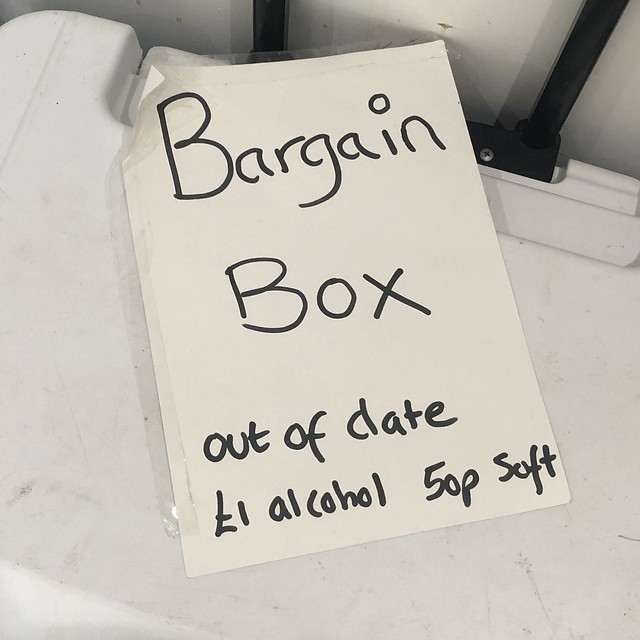 Bargain
Box
out of date
£1 alcohol 50p soft